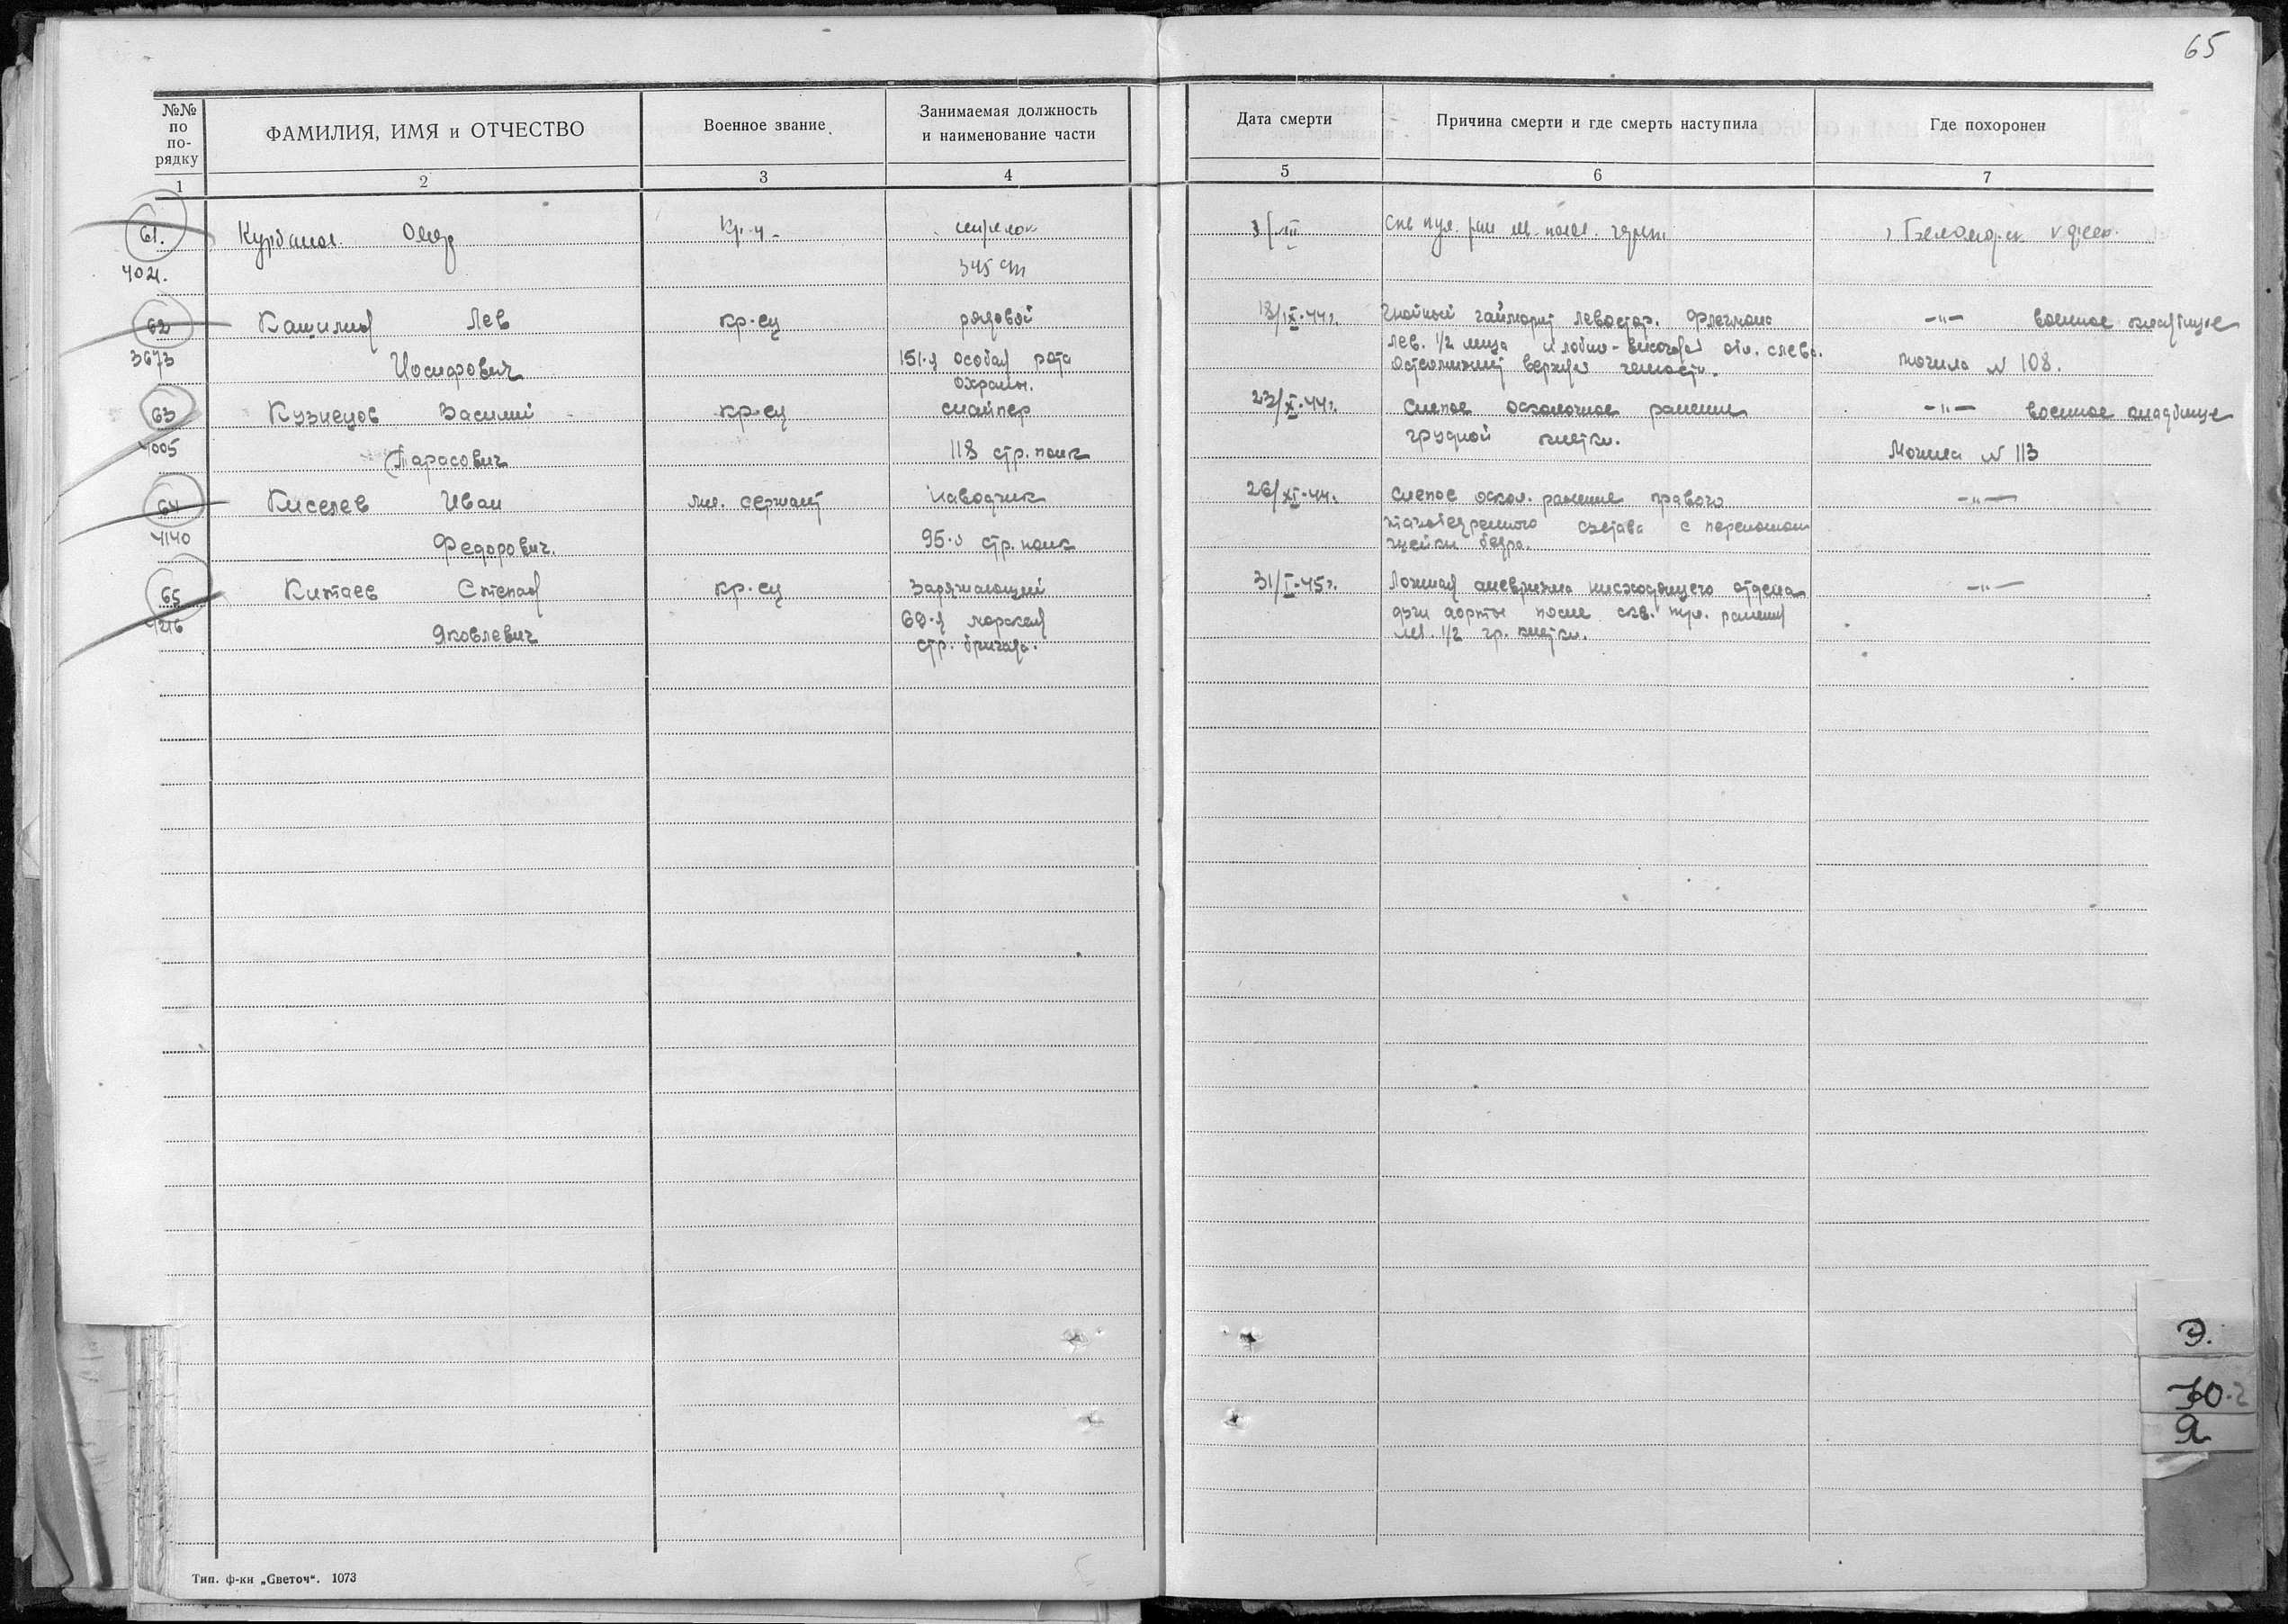 65
№№ по по-рядку
ФАМИЛИЯ, ИМЯ и ОТЧЕСТВО
Военное звание
Занимаемая должность
и наименование части
Дата смерти
Причина смерти и где смерть наступила
Где похоронен
1 2 3 4 5 6 7
61.
кр-ц
стрелок
402
345 сп
62 Лев кр-ец рядовой 18/IX-44г. Гнойный гайморит левостор. Флегмона -"- военное кладбище
лев. 1/2 лица и лобно-височной обл. слева.
3673 Иосифович 151-я особая рота Остеомиелит верхней челюсти. могила N 108.
охраны.
63 Кузнецов Василий кр-ец снайпер 23/XI-44г. Слепое осколочное ранение -"- военное кладбище
грудной клетки.
4005 Тарасович 118 стр. полк Могила N 113
64 Киселев Иван мл. сержант наводчик 26/XI-44г. Слепое оскол. ранение правого -"-
тазобедренного сустава с переломом
4140 Федорович. 95-й стр. полк шейки бедра.
65 Китаев Степан кр-ец Заряжающий 31/I-45г. Ложная аневризма нисходящего отдела -"-
4216 69-я морская дуги аорты после скв. пул. ранения
Яковлевич стр. бригада. лев. 1/2 гр. клетки.
Э.
Ю.
Я
Тип. ф-ки „Светоч“. 1073